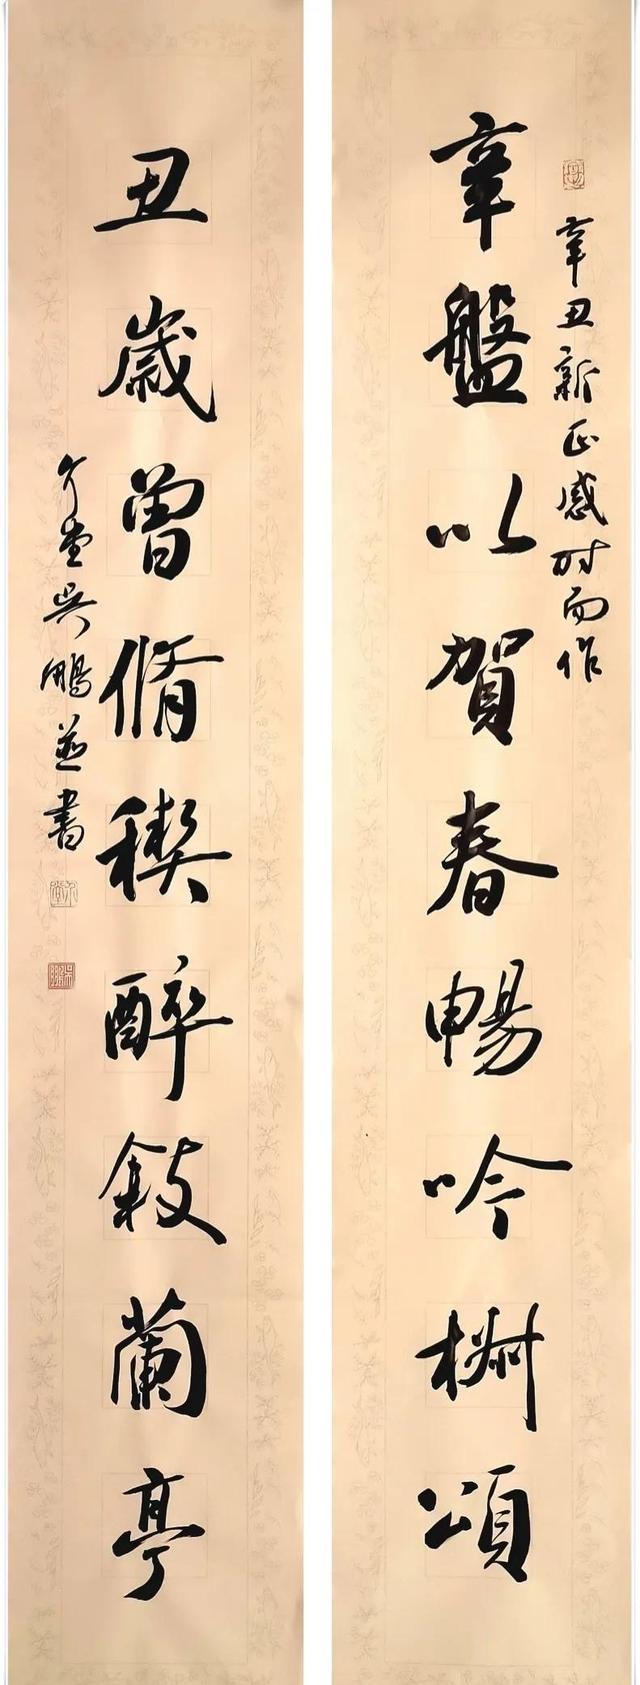 辛丑新正感时而作
辛盤以賀春暢吟椒頌
丑歲曾脩稧醉敍蘭亭
介堂吴鵬並書